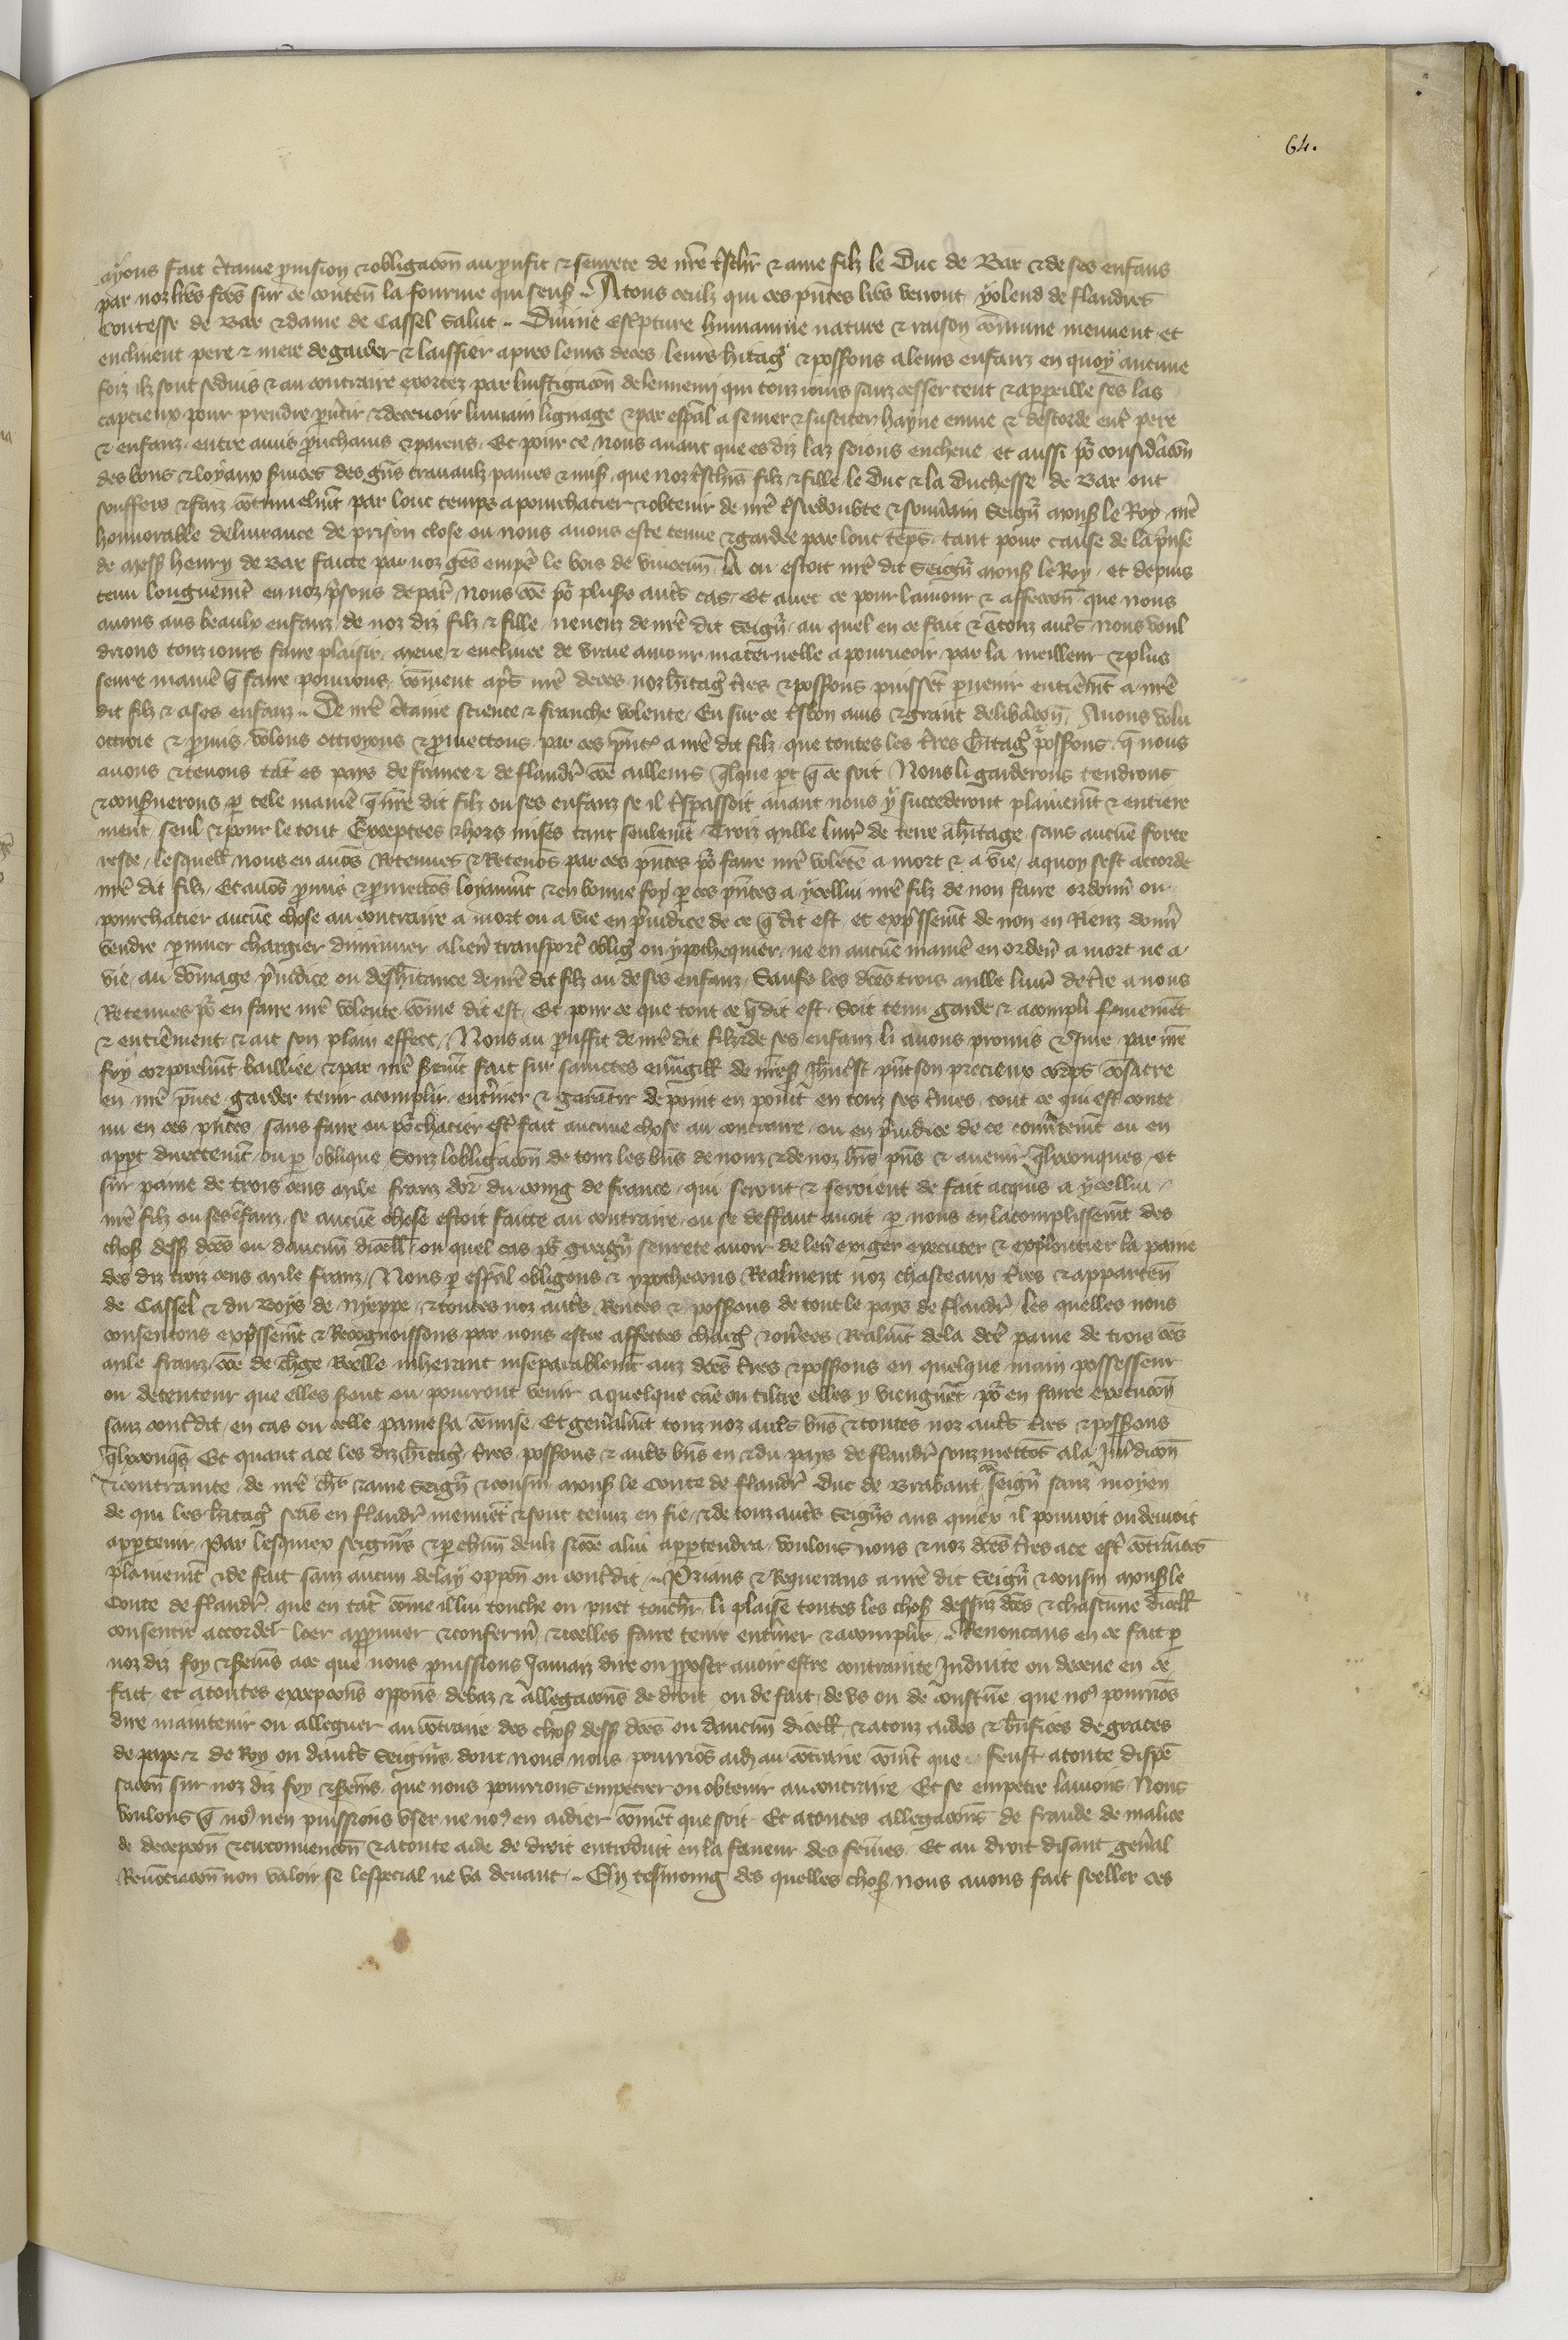 64.
ayons fait c̃taine p̃uision & obligacõn au prouffit & seurete de nr̃e t̃schr̃ & ame filz le Duc de Bar & de ses enfans
par noz lr̃es fc̃es sur ce conten̄ la fourme qui sensˀ .. A tous ceulz qui ces pñtes lr̃es verront yolend de flandres
Contesse de Bar & dame de Cassel Salut .. Diuine esc̃pture humainne nature & raison cõmune meuuent et
enclinent pere & mere de garder & laissier apres leurs deces leurs h̃itagˀ & possˀons a leurs enfanz en quoy aucune
foiz ilz sont seduis & au contraire exortez par linstigacõn de lennemj qui touz iours sanz cesser tent & apparille ses las
captieux pour prendre pũtir & deceuoir lumain lignage & par esp̃al a semer & susciter hayne enuie & descorde ent̃ pere
& enfanz entre amis p̃uchains & parens Et pour ce nous auant que es diz laz soions encheue et aussi põ consid̃acõn
des bons & loyaux s̃uices des gñs trauaulz paines & misˀ que noz t̃schr̃s filz & fille le Duc & la Duchesse de Bar ont
souffers & faiz cõtinuelmt̃ par lonc temps a pourchacier & obtenir de nr̃e t̃sredoubte & souũain Seign̄r monsˀ le Roy nr̃e
honnorable deliurance de prison close ou nous auons este tenue & gardee par lonc tẽps tant pour cause de la p̃nse
de messˀ henry de Bar faicte par noz gẽs emp̃s le bois de vincenn̄ la ou estoit nr̃e dit Seign̄r monsˀ le Roy et depuis
tenu longuemt̃ en noz p̃sons de par Nous cõe põ plusˀs aut̃s cas Et auec ce pour lamour & affeccõn que nous
auons aus beaulx enfanz de noz diz filz & fille neueuz de nr̃e dit Seign̄r au quel en ce fait & ẽ touz aut̃s nous voul
drions touz iours faire plaisir meue & enclinee de vraie amour maternelle a pourueoir par la meilleur & plus
seure manie̋ q̃ faire pourrons cõment ap̃s nr̃e deces noz h̃itagˀ t̃res & possˀons puissẽt p̃uenir entierem̃t a nr̃e
dit filz & a ses enfanz .. De nr̃e c̃taine science & franche volente Eu sur ce t̃sbon auis & grant delib̃acõn Auons volu
ottroie & p̃mis volons ottroyons & p̃mectons par ces p̃ntˀ a nr̃e dit filz que toutes les t̃res h̃itagˀ possˀons q̃ nous
auons & tenons tãt es pays de france & de flandr̃ cõe ailleurs q̃lque pt q̃ ce soit Nous li garderons tendrons
& consˀuerons p tele manie̋ q̃ nr̃e dit filz ou ses enfanz se il t̃spassoit auant nous y succederont plainem̃t & entiere
ment seul & pour le tout Exceptees & hors mises tant seulem̃t Troiz mille liur̃ de terre a h̃itage sans aucũe forte
resce lesquell̃ nous en auõs Retenues & Retenõs par ces pñtes põ faire nr̃e volẽte a mort & a vie a quoy sest accorde
nr̃e dit filz Et auõs p̃mis & p̃mettõs loyaum̃t & en bonne foy p ces pñtes a ycellui nr̃e filz de non faire ordonñ ou
pourchacier aucũe chose au contraire a mort ou a vie en p̃iudice de ce q̃ dit est et exp̃ssem̃t de non en Renz donñ
vendre p̃muer chargier diminuer alien̄ transport̃ obligˀ ou ypothequier ne en aucũe manie̋ en orden̄ a mort ne a
vie au dõmage p̃iudice ou desh̃itance de nr̃e dit filz ou de ses enfanz Saufs les dc̃es trois mille liur̃ de t̃re a nous
Retenues põ en faire nr̃e volente cõme dit est Et pour ce que tout ce q̃ dit est Soit tenu garde & acompli fermemẽt
& entierement & ait son plain effect Nous au p̃uffit de nr̃e dit filz & de ses enfanz li auons promis & Jure par nr̃e
foy corporelm̃t bailliee & par nr̃e s̃em̃t fait sur sainctes euuãgill̃ de nr̃esˀ Jh̃ucrist p̃nt son precieux corps cõsacre
en nr̃e p̃nce garder tenir acomplir ent̃iner & garãtir de point en point en touz ses t̃mes tout ce qui est conte
nu en ces pñtes sans faire ou põchacier est̃ fait aucune chose au contraire ou en p̃iudice de ce couuertem̃t ou en
appt directem̃t ou p oblique Souz lobligacõn de touz les biẽs de nouz & de noz hr̃s pñs & auenir q̃lxconques et
sur paine de trois cens mile franz dor du coing de france qui seront & seroient de fait acquis a ycellui
nr̃e filz ou ses ẽfanz se aucũe chose estoit faicte au contraire ou se deffaut auoit p nous en lacomplissem̃t des
chosˀ dessˀ dc̃es ou daucun̄ dicell̃ ou quel cas põ greign̄r seurete auoir de leu̇r exiger executer & exploictier la paine
des diz troiz cens mile franz Nous p esp̃al obligons & ypothecons Realment noz chasteaux t̃res & apparten̄
de Cassel & du Boys de Nyeppe & toutes noz aut̃s Rentes & possˀons de tout le pays de flandr̃ les quelles nous
consentons exp̃ssem̃t & Recognoissons par nous estre affectes chargˀ & on̄rees Realm̃t de la dc̃e paine de trois cẽs
mile franz cõe de ch̃ge Reelle inherant inseparablem̃t auz dc̃es t̃res & possˀons en quelque main possesseur
ou detenteur que elles soient ou pourront venir a quelque cãe ou tiltre elles y viengnẽt põ en faire execucõn
sanz cont̃dit en cas ou celle paine sˀa cõmise Et gen̄alm̃t touz noz aut̃s biẽs & toutes noz aut̃s t̃res & possˀons
q̃lxconq̃s Et quant a ce les diz h̃itagˀ t̃res possˀons & aut̃s biẽs en & du pays de flandr̃ souzmettõs a la Juridicõn
& contrainte de nr̃e ch̃r & ame Seign̄r & cousin monsˀ le Conte de flandr̃ Duc de Brabant cõe seign̄r sanz moyen
de qui les h̃itagˀ seãs en flandr̃ meuuẽt & sont tenuz en fie & de touz aut̃s Seign̄rs aus quiex il pourroit ou deuroit
appartenir Par lesquiex seign̄rs & p ch̃un deulz si cõe a lui appartendra voulons nous & noz dc̃es t̃res a ce est̃ cõtraĩctes
plainem̃t & de fait sanz aucun delay opposn̄ ou cont̃dit .. Prians & Requerans a nr̃e dit Seign̄r & cousin monsˀ le
Conte de flandr̃ que en tãt cõme il lui touche ou puet touchr̃ li plaise toutes les chosˀ dessuz dc̃es & chascune dicell̃
consentir accorder loer approuuer & conferm̃ & icelles faire tenir ent̃iner & acomplir .. Renoncans en ce fait p
noz diz foy & s̃ems a ce que nous puissions Jamaiz dire ou p̃poser auoir estre contrainte Induite ou deceue en ce
fait et a toutes excepcõns opposn̄s debaz & allegacõns de droit ou de fait de vs ou de coustũe que noˀ pourriõs
dire maintenir ou alleguer au cõtraire des chosˀ dessˀ dc̃es ou daucun̄ dicell̃ & a touz aides & b̃nfices de graces
de pape & de Roy ou dauts̃ Seign̄rs dont nous nous pourriõs aidˀ au cõtraire cõmt̃ que ce feust a toute dispẽ
sacõn sur noz diz foy & s̃ems que nous pourrions empetrer ou obtenir au contraire Et se empetre lauions Nous
voulons q̃ noˀ nen puissions vser ne noˀ en aidier cõmẽt que soit Et a toutes allegacõns de fraude de malice
de decepcõn & circonuencõn & a toute aide de droit introduit en la faueur des fem̃es Et au droit disant gen̄al
Renũciacõn non valoir se lespecial ne va deuant .. En tesmoing des quelles chosˀ nous auons fait seeller ces